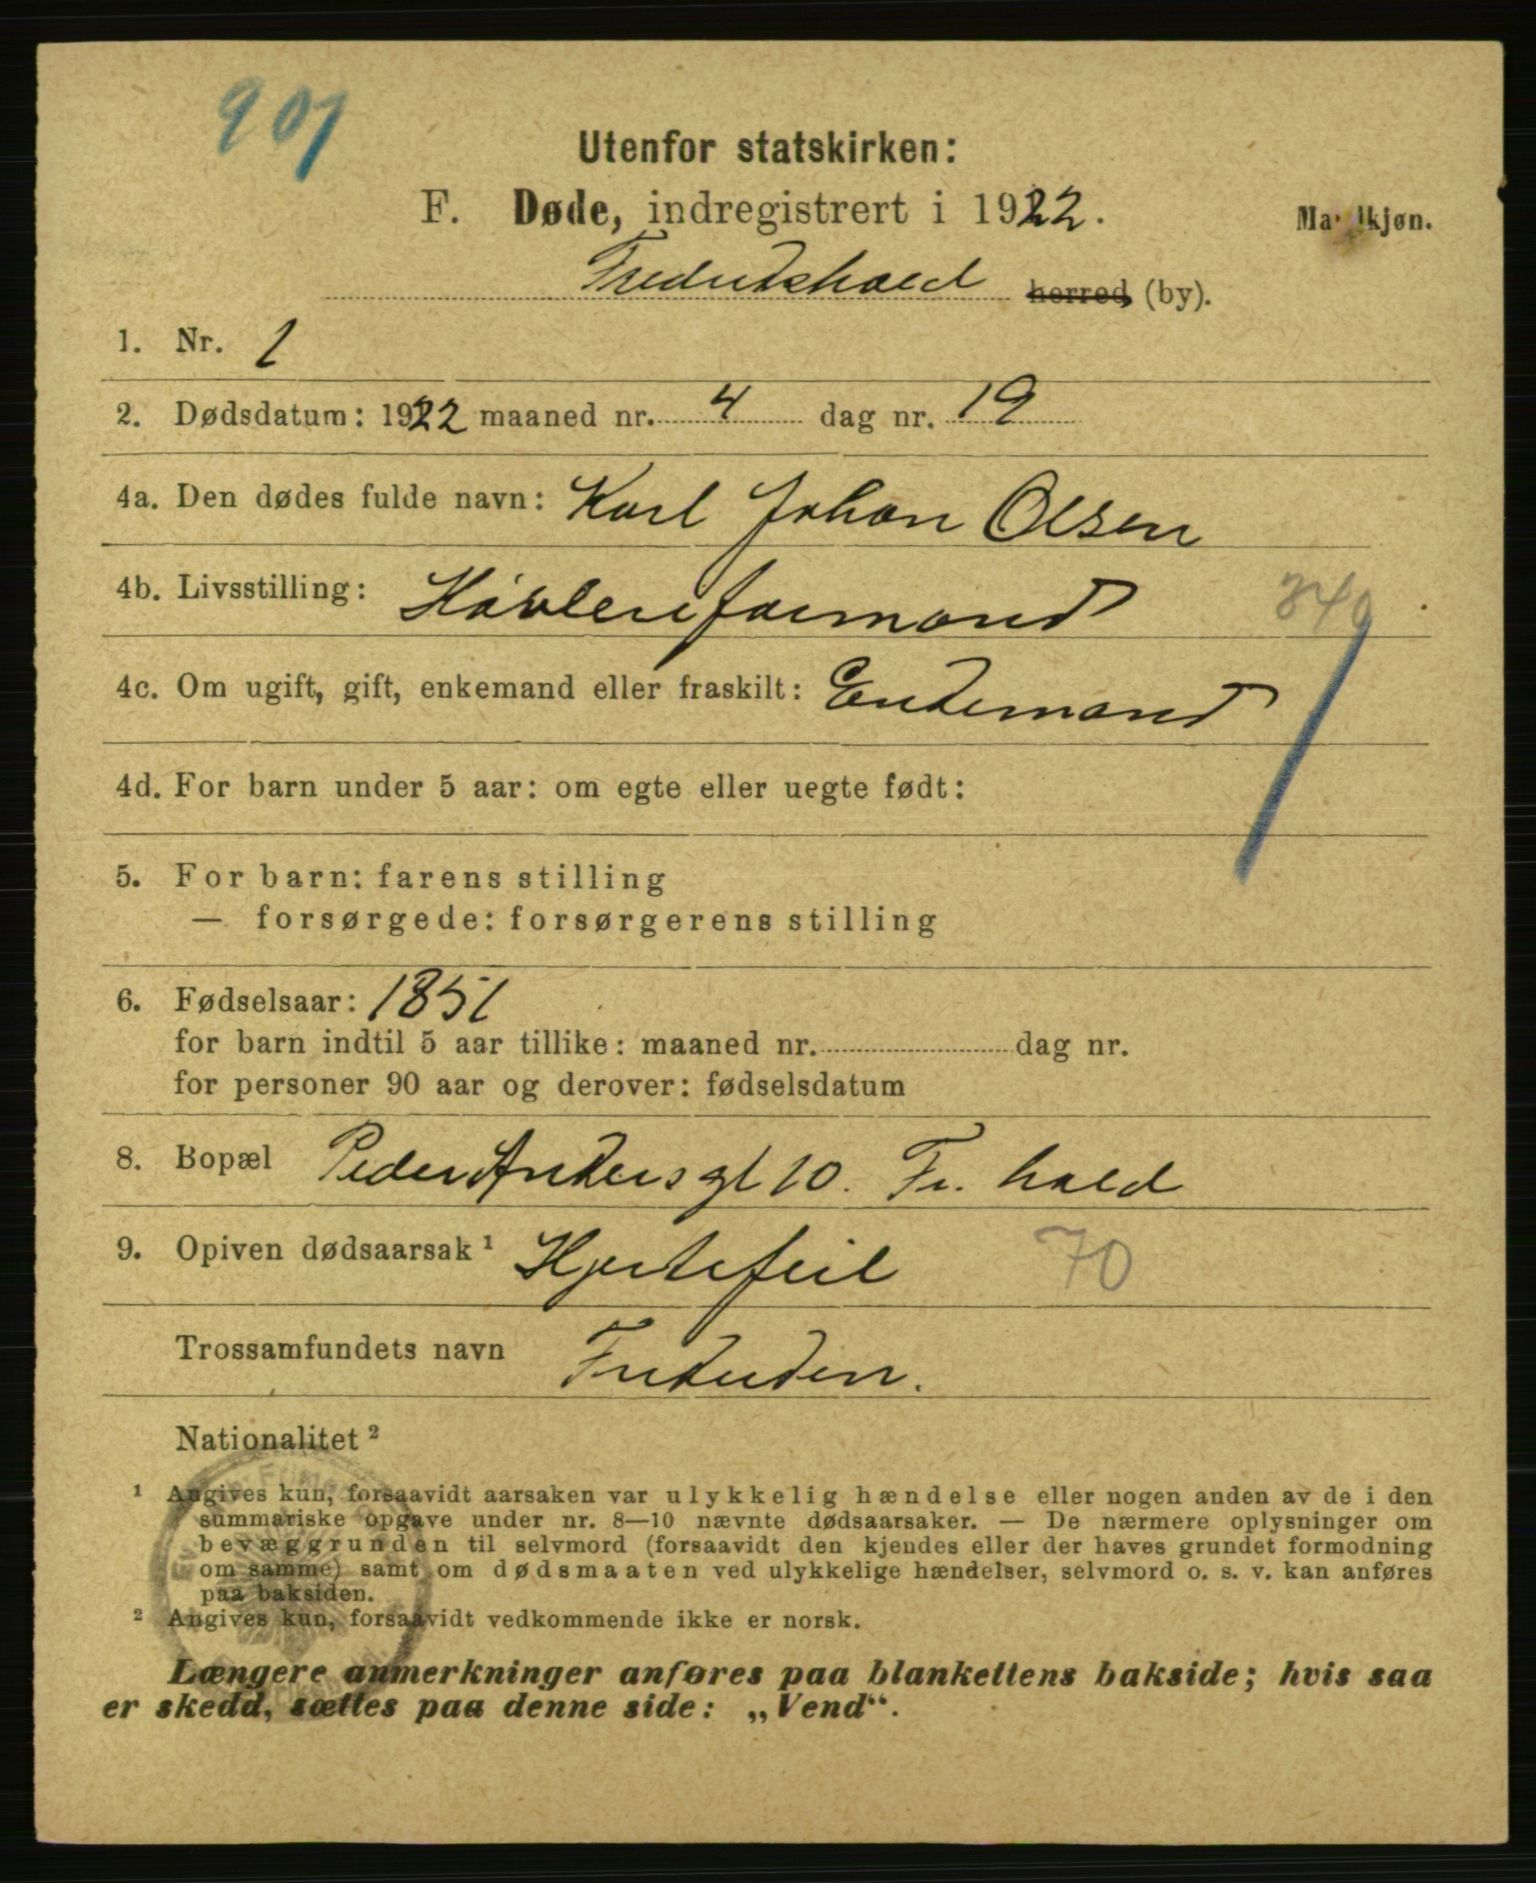 901
Utenfor statskirken:
F. Døde, indregistrert i 1922. Ma kjøn.
Fredrikshald herred, (by).
1. Nr. 1
2. Dødsdatum: 1922 maaned nr. 4 dag nr. 19
4a. Den dødes fulde navn: Karl Johan Olsen
4b. Livsstilling: Høvleriformand 340
4c. Om ugift, gift, enkemand eller fraskilt: Enkemand
4d. For barn under 5 aar: om egte eller uegte født:
5. For barn: farens stilling
— forsørgede: forsørgerens stilling
6. Fødselsaar: 1851
for barn indtil 5 aar tillike: maaned nr. dag nr.
for personer 90 aar og derover: fødselsdatum
8. Bopæl Peder Ankers gt 10. Fr. hald
9. Opiven dødsaarsak ¹ Hjertefeil 70
Trossamfundets navn Frikirken.
Nationalitet ²
¹ Angives kun, forsaavidt aarsaken var ulykkelig hændelse eller nogen anden av de i den
summariske opgave under nr. 8—10 nævnte dødsaarsaker. — De nærmere oplysninger om
bevæggrunden til selvmord (forsaavidt den kjendes eller der haves grundet formodning
om samme) samt om dødsmaaten ved ulykkelige hændelser, selvmord o. s. v. kan anføres
paa baksiden.
² Angives kun, forsaavidt vedkommende ikke er norsk.
Længere anmerkninger anføres paa blankettens bakside; hvis saa
er skedd, sættes paa denne side: „Vend“.